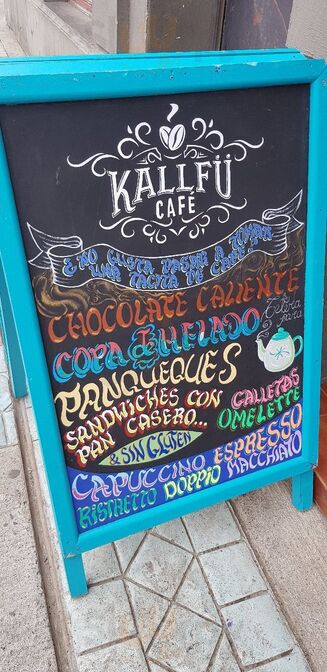 KALLFÜ
CAFÉ
¿NO GUSTA PASAR A TOMAR
UNA TACITA DE CAFÉ?
CHOCOLATE CALIENTE
COPA DE HELADO
PANQUEQUES
SANDWICHES CON
PAN CASERO...
& SIN GLUTEN
GALLETAS
OMELETTE
CAPUCCINO ESPRESSO
RISTRETTO DOPPIO MACCHIATO